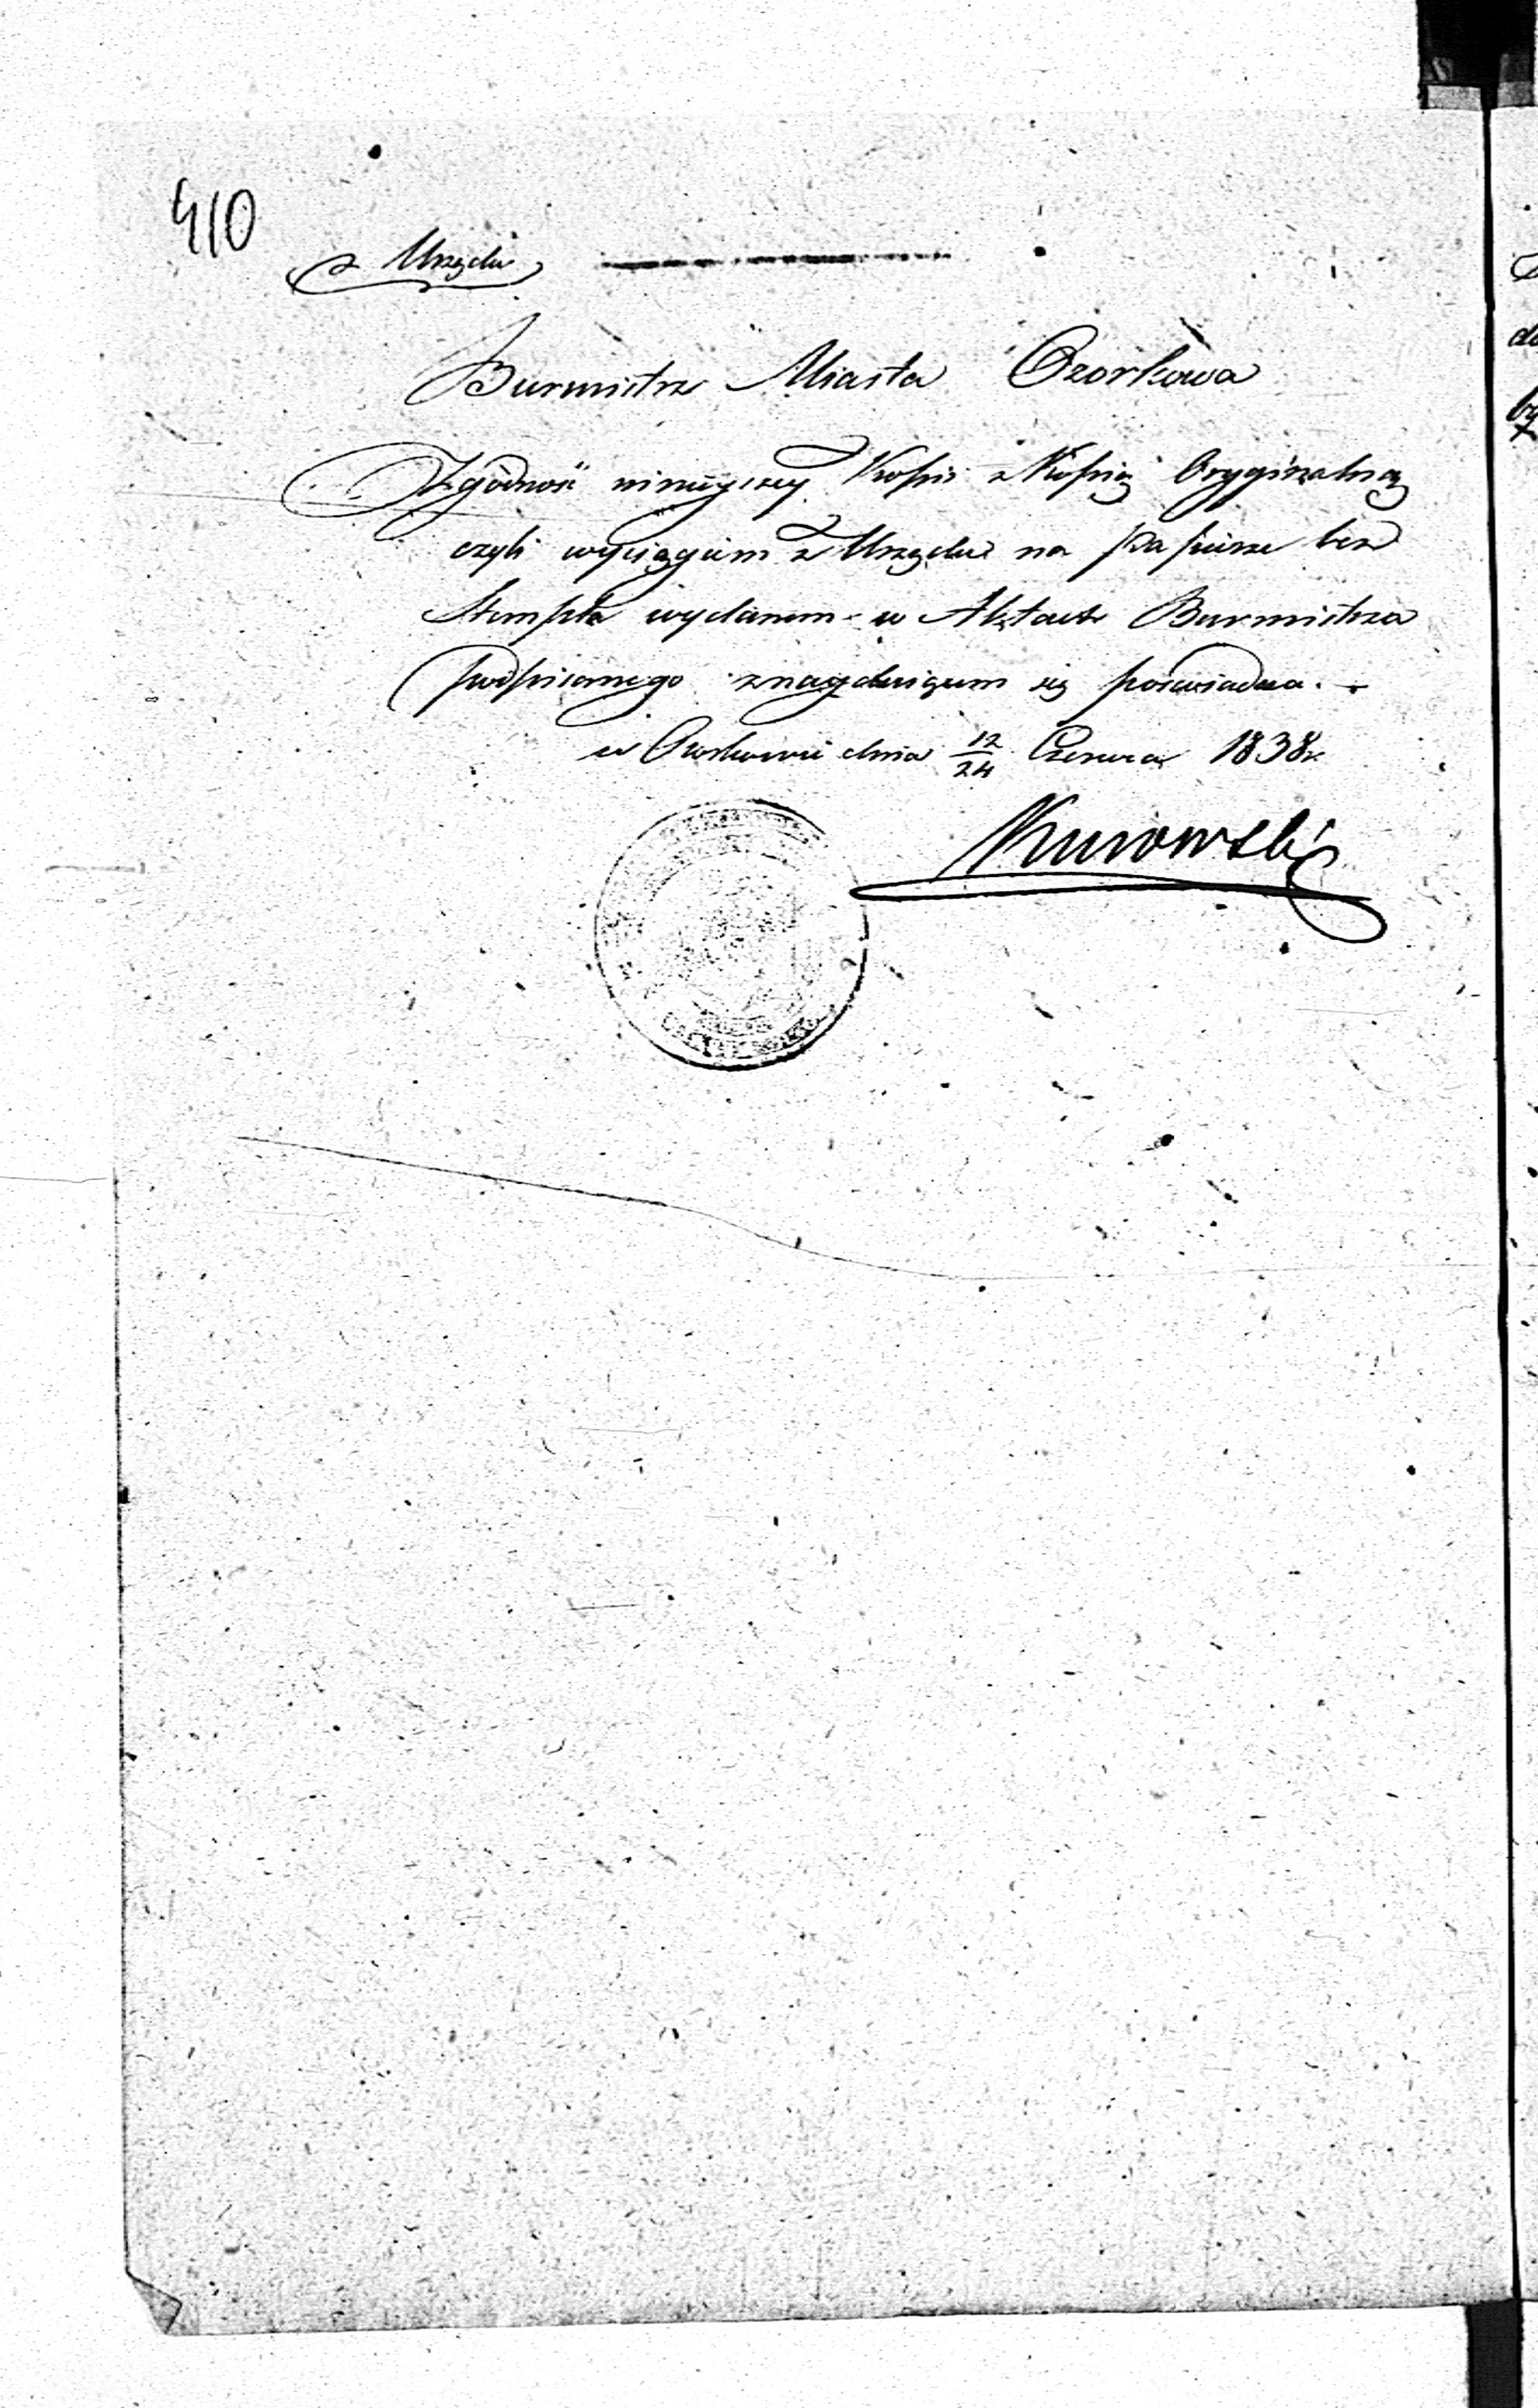 410
z Urzędu
Burmistrz Miasta Ozorkowa
Zgodność ninieyszey Kopii z Kopią Oryginalną
czyli wyciągiem z Urzędu na papierze bez
Stempla wydanem w Aktach Burmistrza
podpisanego znayduiącem się poświadcza.
w Ozorkowie dnia 12/24 Czerwca 1838r.
Kurowski